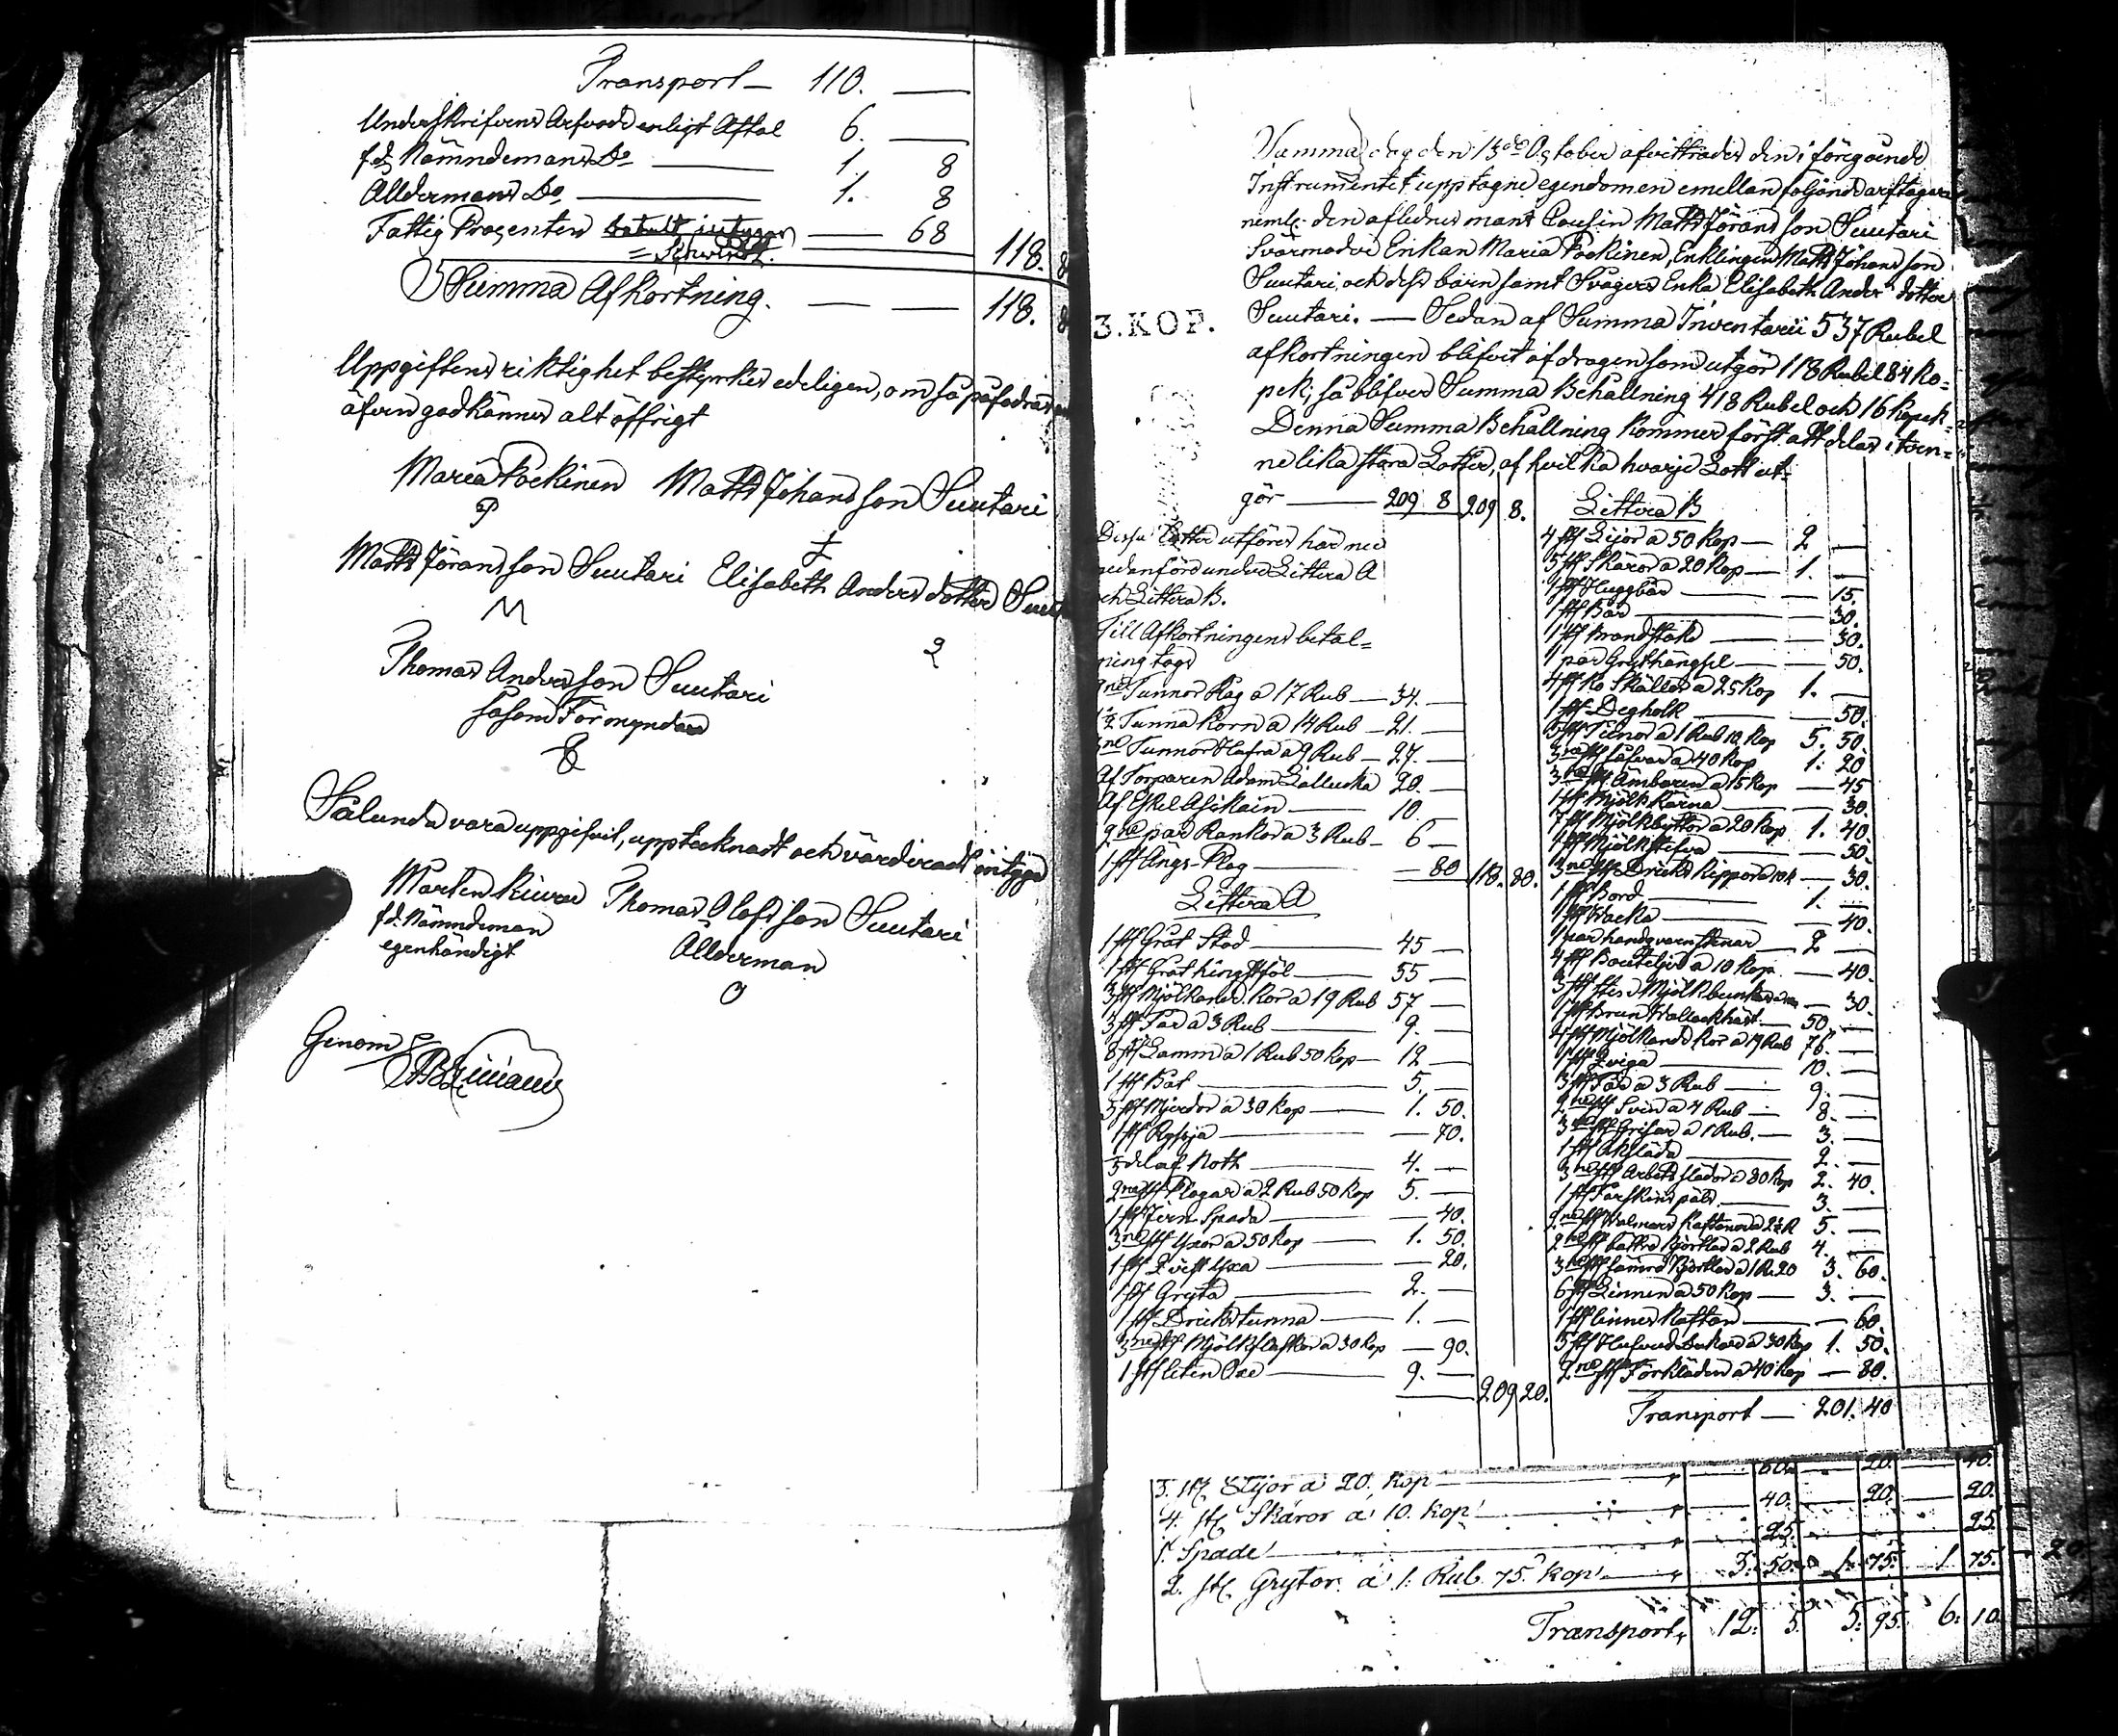 Transport — 110. —
Underskrifvens Arfvode enligt Aftal 6. —
f.d. Nämndemans Do — 1. 8
Alldermans Do — 1. 8
Fattig Procenten betalt — 68 118. 8
Summa Afkortning. — — 118. 8
Uppgiftens riktighet bestyrkes edeligen, om så påfodras
äfven godkännes alt öffrigt
Maria Pöckinen Matts Johansson Suutari
Matts Göransson Suutari Elisabeth Anders dotter
Thomas Andersson Suutari
såsom Förmyndare
Sålunda vara uppgifvit, upptecknadt och värderadt intyga
Mårten Kiuru Thomas Olofsson Suutari
f.d. Nämndeman Ållderman
egenhändigt
Genom
Samma dag den 13de October afvittrades den i föregående
Instrumentet upptagne egendomen emellan följande arftagare
neml: den aflidnes mans Cousin Matts Göransson Suutari
Svärmodren Enkan Maria Pöckinen, Enklingen Matts Johansson
Suutari, och dess barn samt Svågers Enka Elisabeth Anders dotter
3. KOP. Suutari. — Sedan af Summa Inventarii 537 Rubel
afkortningen blifvit afdragen som utgör 118 Rubel 84 Ko=
pek; så blifver Summa Behållning 418 Rubel och 16 Kopek
Denna Summa Behållning kommer först att delas i tven=
ne lika stora Lotter, af hvilka hvarje Lott ut=
gör — 209 8 209 8.
Dessa Lotter utföres här ne
danföre under Littera A
och Littera B.
Till Afkortningens betal=
ning togs
2ne Tunnor Råg a 17 Rub — 34. —
1½ Tunna Korn a 14 Rub — 21. —
3ne Tunnor Hafra a 9 Rub — 27. —
Af Torparen Adam 20. —
Af Eskel Asikain — 10.
2ne par Rankor a 3 Rub — 6 —
1 st Ängs-Plog — 80 118. 80.
Littera A
1 st Grå Stod — 45 —
1 st Grå hingstföl — 55 —
3 st Mjölkande Kor a 19 Rub 57 —
3 st Får a 3 Rub — 9. —
8 st Lamm a 1 Rub 50 Kop — 12 —
1 st Båt — 5. —
5 st Mjerdor a 30 Kop — 1. 50.
1 st Ryssja — 70.
del af Noth — 4. —
2ne st Plogar a 2 Rub 50 Kop 5. —
1 st Jern-Spada — 40.
3ne st Yxor a 50 Kop — 1. 50.
1 st Yxa — 20.
1 st Gryta — 2. —
1 st Dricks tunna — 1. —
3ne st Mjölkflaskor a 30 Kop — 90.
1 st liten Oxe — 9. —
209 20.
Littera B
4 st Lijor a 50 Kop — 2 —
5 st Skäror a 20 Kop — 1. —
1 st — 15.
1 st Bår — 30.
1 st Brandstake — 30.
1 par Grythängsel — 50.
4 st Ko Skällor a 25 Kop 1. —
1 st Degholk — 50.
5 st Tunor a 1 Rub 10 Kop 5. 50.
3ne st Såfvar a 40 Kop 1. 20
3ne st Ämbaren a 15 Kop — 45
1 st Mjölk Kärna — 30.
7 st Mjölkbyttor a 20 Kop 1. 40
1 st Mjölkstilva — 50.
3ne st Dricks Kippor a 10 K — 30.
1 st Bord — 1. —
1 st Wacka — 40.
1 par handqvarn stenar — 2 —
4 st Bouteljer a 10 Kop. — 40.
3 st Mjölkbunkar — 30.
1 st Brun Wallackhäst — 50 —
4 st Mjölkande Kor a 19 Rub 76. —
1 st Qviga — 10. —
3 st Får a 3 Rub — 9. —
2ne st Svin a 4 Rub — 8. —
3ne st Grisar a 1 Rub. — 3. —
1 st Åksläda — 2. —
3ne st Arbets slädor a 80 Kop 2. 40.
1 st Fårskins päls — 3. —
2ne st Walmars Kaftanor a 2½ R 5. —
2ne st bättre Kjortlar a 2 Rub 4. —
3ne st sämre Kjortlar a 1 R. 20 3. 60.
6 st Linnen a 50 Kop — 3. —
1 st linnes Kaftan — 60.
5 st Hufvud Dukar a 30 Kop 1. 50.
2ne st Förkläden a 40 Kop — 80.
Transport — 201. 40
3. st. Lijor a 20. Kop — 60. — 20. — 40.
4. st. Skäror á 10. Kop — 40. — 20. — 20.
1. Spade — 25. — 25.
2. st. Grytor á 1. Rub. 75. Kop — 3. 50. 1. 75. 1 75.
Transport, 12. 5. 5. 95. 6. 10.